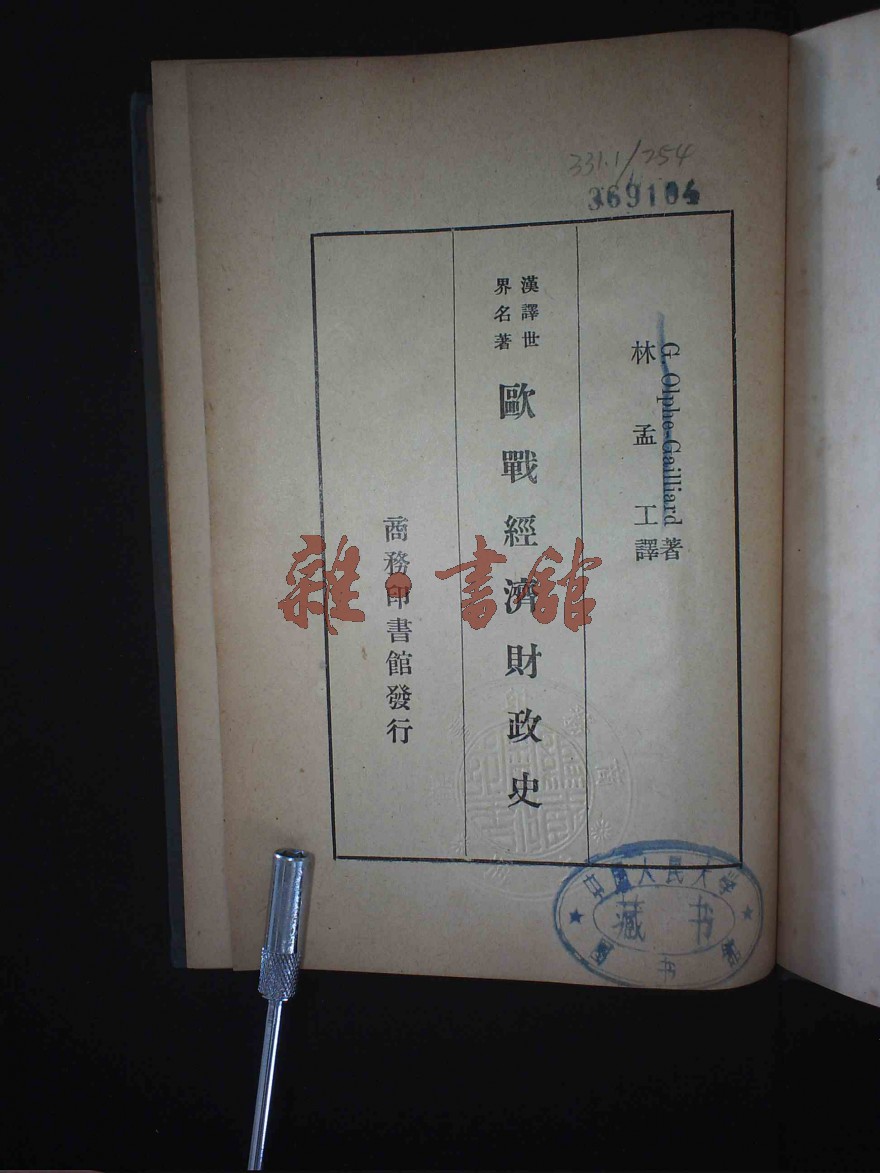 331.1/254
369104
G. Olphe-Gailliard著
林孟工譯
漢譯世
界名著
歐戰經濟財政史
商務印書館發行
雜·書館
中國人民大学
藏书
圖书館